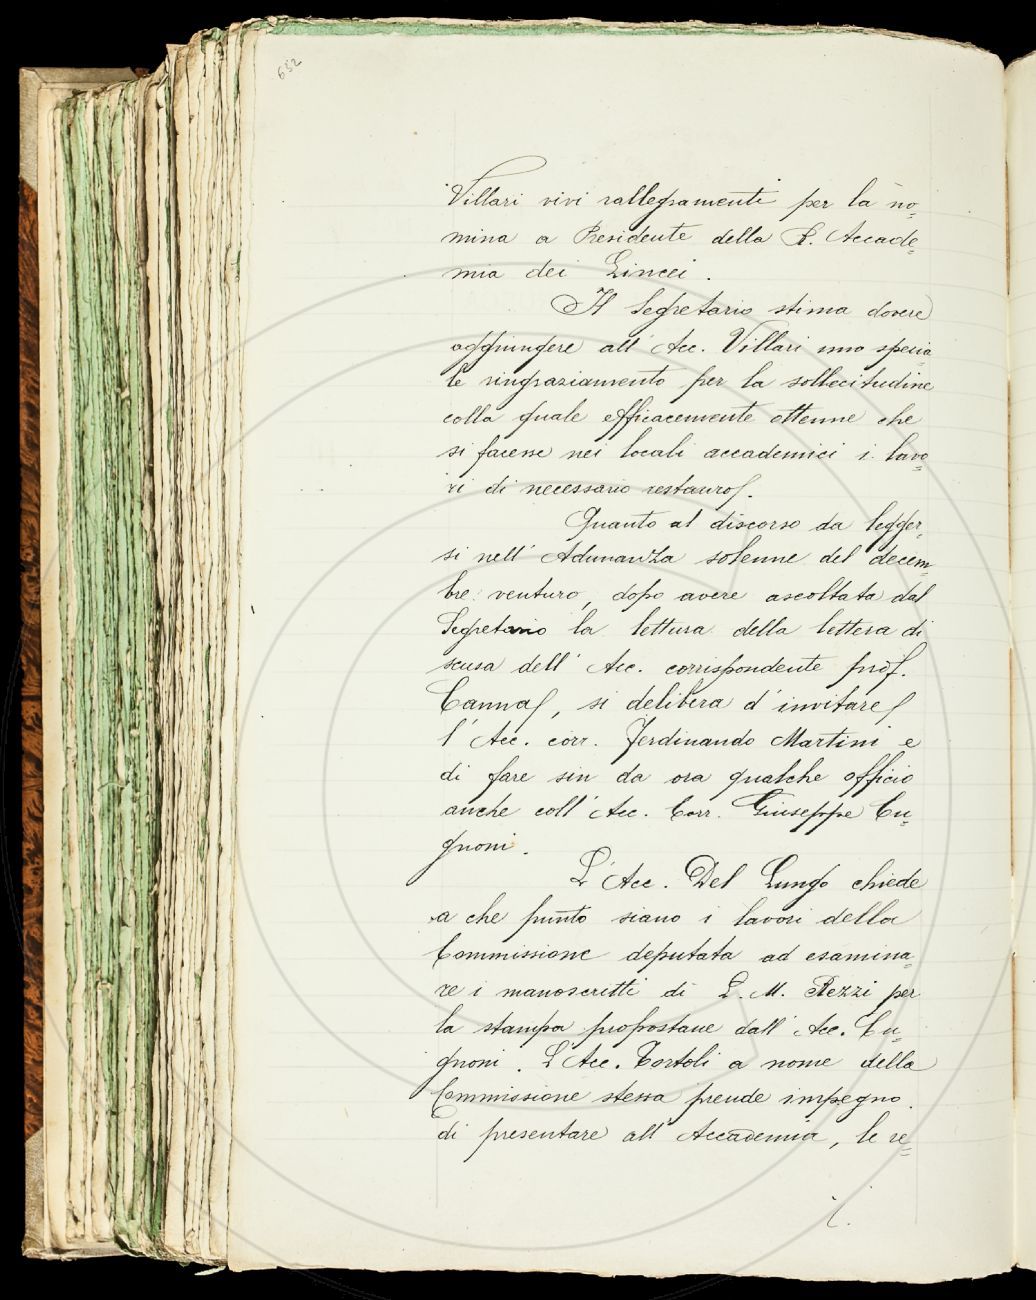 652
Villari vivi rallegramenti per la no=
mina a Presidente della R. Accade=
mia dei Lincei.
Il Segretario stima dovere
aggiungere all'Acc. Villari uno specia=
le ringraziamento per la sollecitudine
colla quale efficacemente ottenne che
si facesse nei locali accademici i lavo=
ri di necessario restauro.
Quanto al discorso da legger=
si nell'Adunanza solenne del decem=
bre venturo, dopo avere ascoltata dal
Segretario la lettura della lettera di
scusa dell'Acc. corrispondente prof.
Canna, si delibera d'invitare
l'Acc. corr. Ferdinando Martini e
di fare sin da ora qualche officio
anche coll'Acc. Corr. Giuseppe Cu=
gnoni.
L'Acc. Del Lungo chiede
a che punto siano i lavori della
Commissione deputata ad esamina=
re i manoscritti di L. M. Rezzi per
la stampa propostane dall'Acc. Cu=
gnoni. L'Acc. Tortoli a nome della
Commissione stessa prende impegno
di presentare all'Accademia, le re=